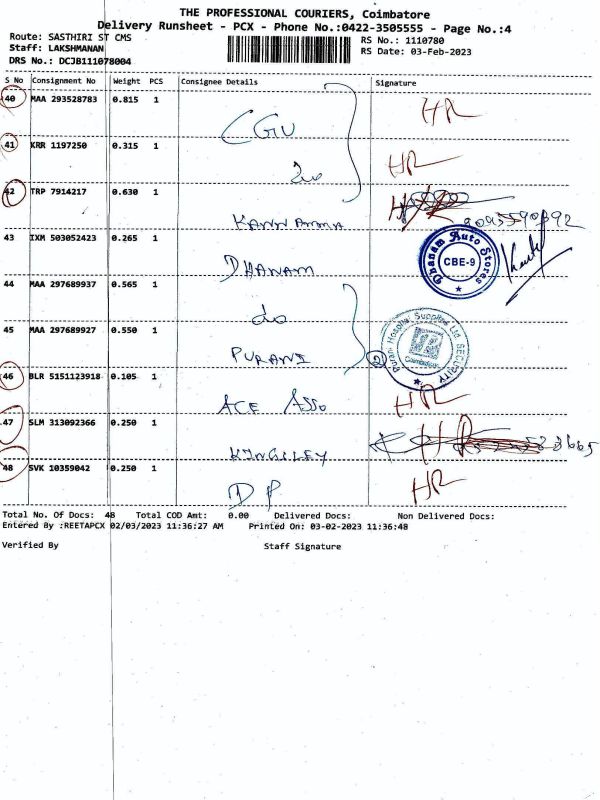 THE PROFESSIONAL COURIERS, Coimbatore
Delivery Runsheet - PCX - Phone No.:0422-3505555 - Page No.:4
Route: SASTHIRI ST CMS
RS No.: 1110780
Staff: LAKSHMANAN
RS Date: 03-Feb-2023
DRS No.: DCJB111078004
S No Consignment No Weight PCS Consignee Details Signature
40 MAA 293528783 0.815 1 HR
CGU
41 KRR 1197250 0.315 1 HR
42 TRP 7914217 0.630 1 HR
KANNAMMA
43 IXM 503052423 0.265 1
Dhanam Auto Stores CBE-9
DHANAM
44 MAA 297689937 0.565 1
do
45 MAA 297689927 0.550 1
Purani Hospital Supplies Ltd SECURITY Coimbatore
PURANI 2
46 BLR 5151123918 0.105 1 HR
ACE Asso
47 SLM 313092366 0.250 1 HR
KINGSLEY
48 SVK 10359042 0.250 1 HR
D P
Total No. Of Docs: 48 Total COD Amt: 0.00 Delivered Docs: Non Delivered Docs:
Entered By :REETAPCX 02/03/2023 11:36:27 AM Printed On: 03-02-2023 11:36:48
Verified By Staff Signature